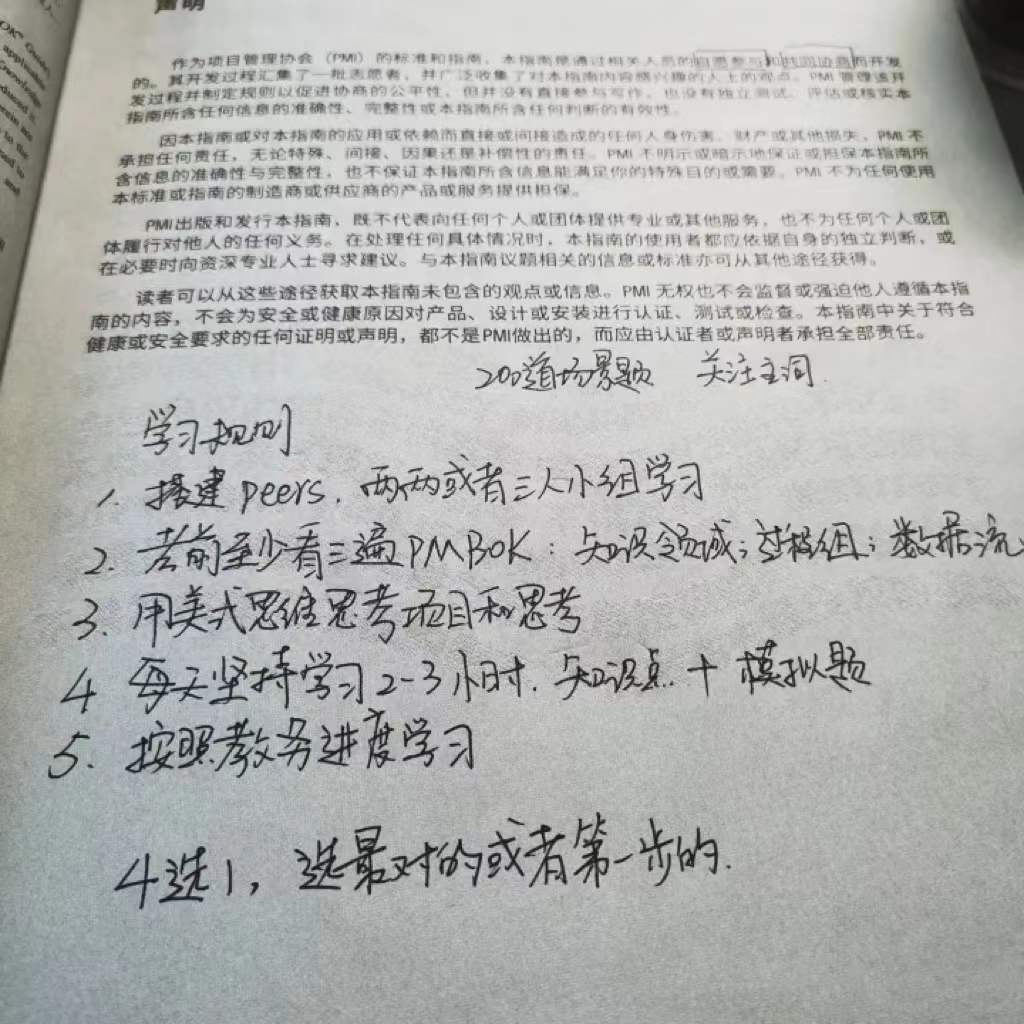 OK® Guide
application
Knowledge
to the
and
声明
作为项目管理协会（PMI）的标准和指南，本指南是通过相关人员的自愿参与和共同协商而开发
的。其开发过程汇集了一批志愿者，并广泛收集了对本指南内容感兴趣的人士的观点。PMI 管理该开
发过程并制定规则以促进协商的公平性，但并没有直接参与写作，也没有独立测试、评估或核实本
指南所含任何信息的准确性、完整性或本指南所含任何判断的有效性。
因本指南或对本指南的应用或依赖而直接或间接造成的任何人身伤害、财产或其他损失，PMI 不
承担任何责任，无论特殊、间接、因果还是补偿性的责任。PMI 不明示或暗示地保证或担保本指南所
含信息的准确性与完整性，也不保证本指南所含信息能满足你的特殊目的或需要。PMI 不为任何使用
本标准或指南的制造商或供应商的产品或服务提供担保。
PMI出版和发行本指南，既不代表向任何个人或团体提供专业或其他服务，也不为任何个人或团
体履行对他人的任何义务。在处理任何具体情况时，本指南的使用者都应依据自身的独立判断，或
在必要时向资深专业人士寻求建议。与本指南议题相关的信息或标准亦可从其他途径获得。
读者可以从这些途径获取本指南未包含的观点或信息。PMI 无权也不会监督或强迫他人遵循本指
南的内容，不会为安全或健康原因对产品、设计或安装进行认证、测试或检查。本指南中关于符合
健康或安全要求的任何证明或声明，都不是PMI做出的，而应由认证者或声明者承担全部责任。
200道场景题 关注主词.
学习规则
1. 搭建 peers. 两两或者三人小组学习
2. 考前至少看三遍PMBOK：知识领域；过程组；数据流
3. 用美式思维思考项目和思考
4 每天坚持学习2-3小时. 知识点 + 模拟题
5. 按照教务进度学习
4选1，选最对的或者第一步的.